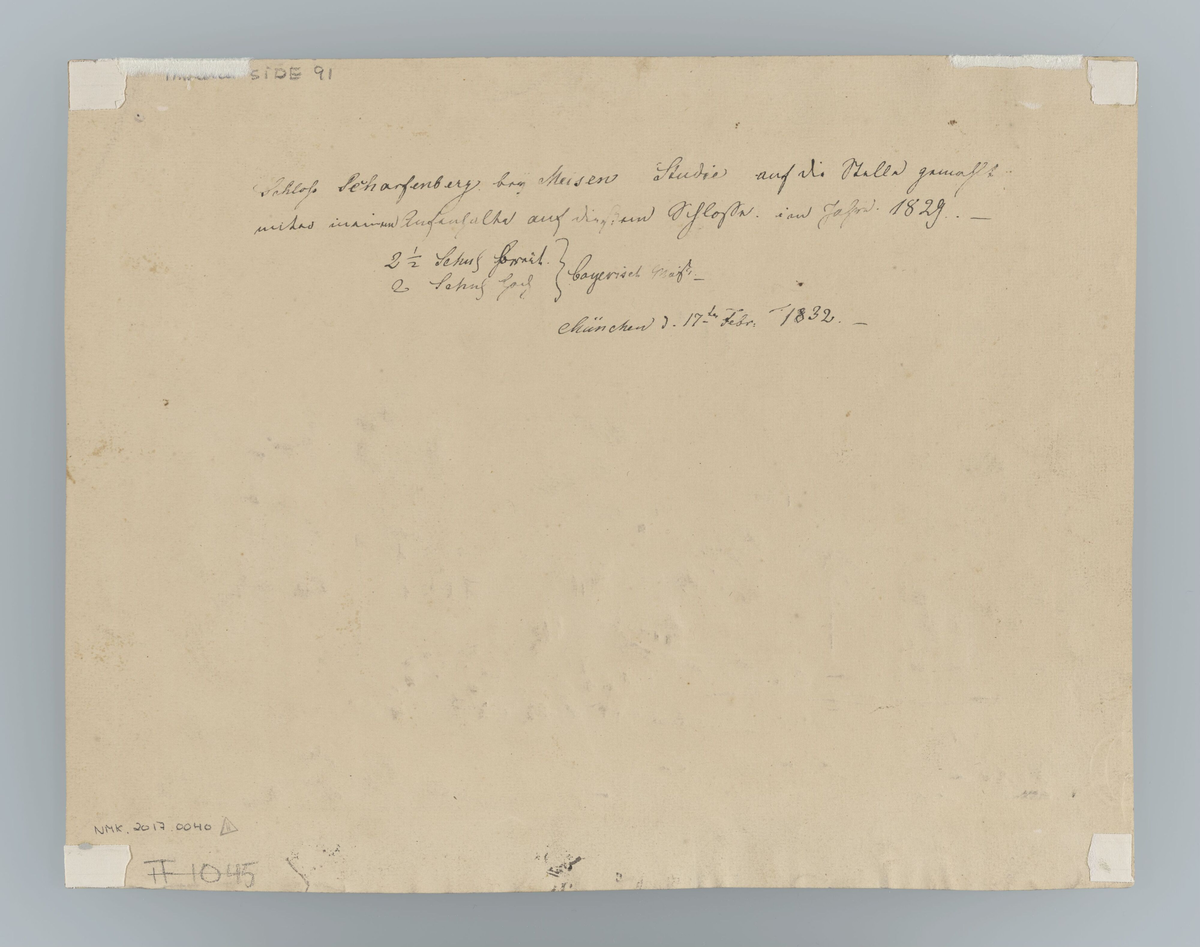 SIDE 91
Schloss Scharfenberg bey Meisen Studie auf die Stelle gemahlt
meinem Aufenhalte auf diesem Schlosse. im Jahre 1829. —
2 ½ Schuh breit.
2 Schuh hoch } bayerisch Maß. —
München d. 17ten Febr. 1832. —
NMK.2017.0040
TF 1045